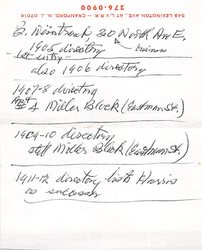 549 LEXINGTON AVE. AT L.V.R.R. - CRANFORD, N. J. 07016
276-0900
30 North Ave E.
1905 directory business
last entry
also 1906 directory
1907-8 directory
4 Miller Block (Eastman St.)
1909-10 directory
still Miller Block (Eastman St.)
1911-12 directory lists Harris
as successor